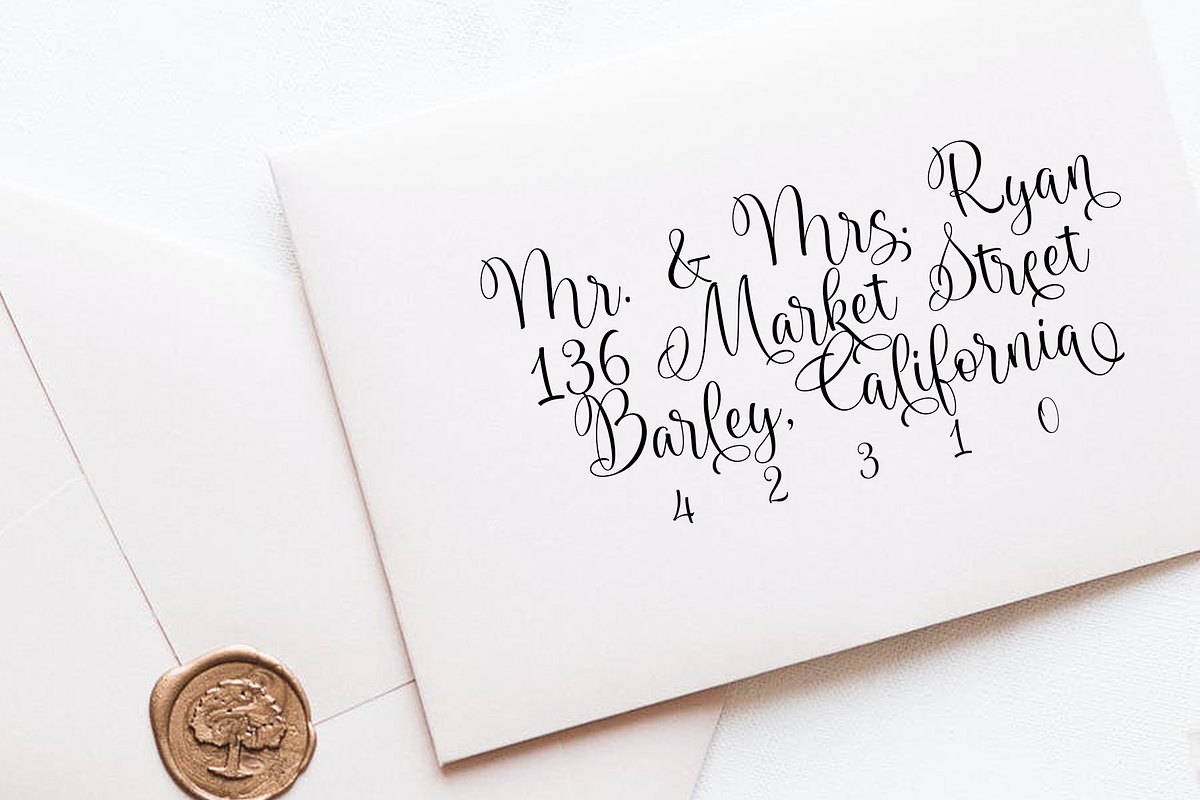 Mr. & Mrs; Ryan
136 Market Street
Barley, California
4 2 3 1 0